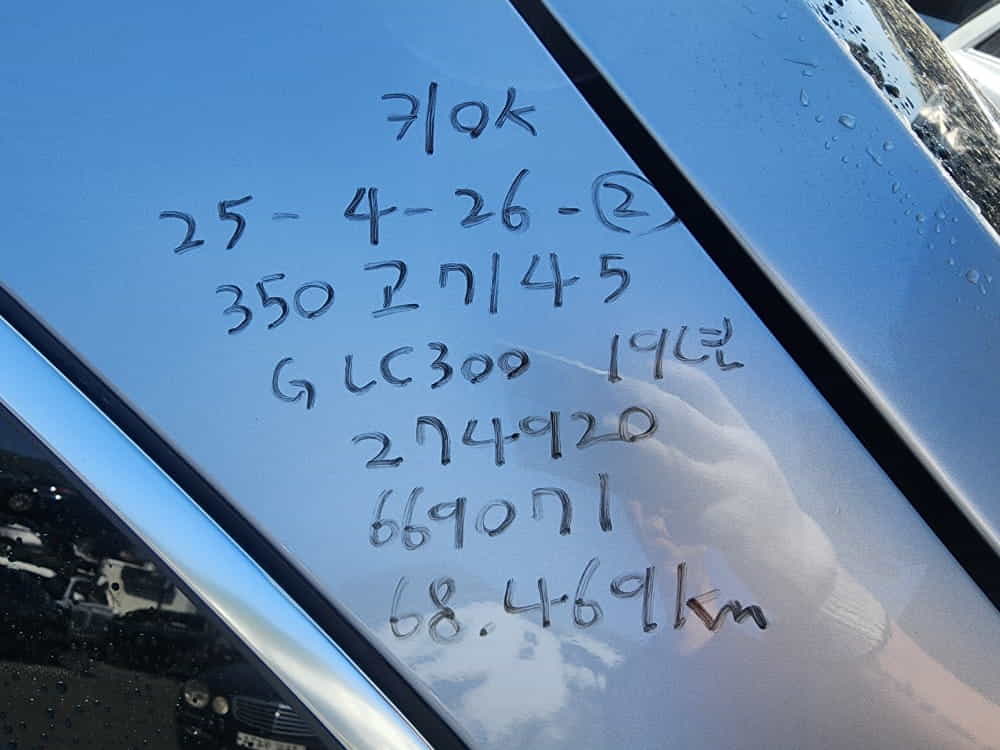 키OK
25-4-26-②
350 고 7145
GLC300 19년
274920
669071
68.469km